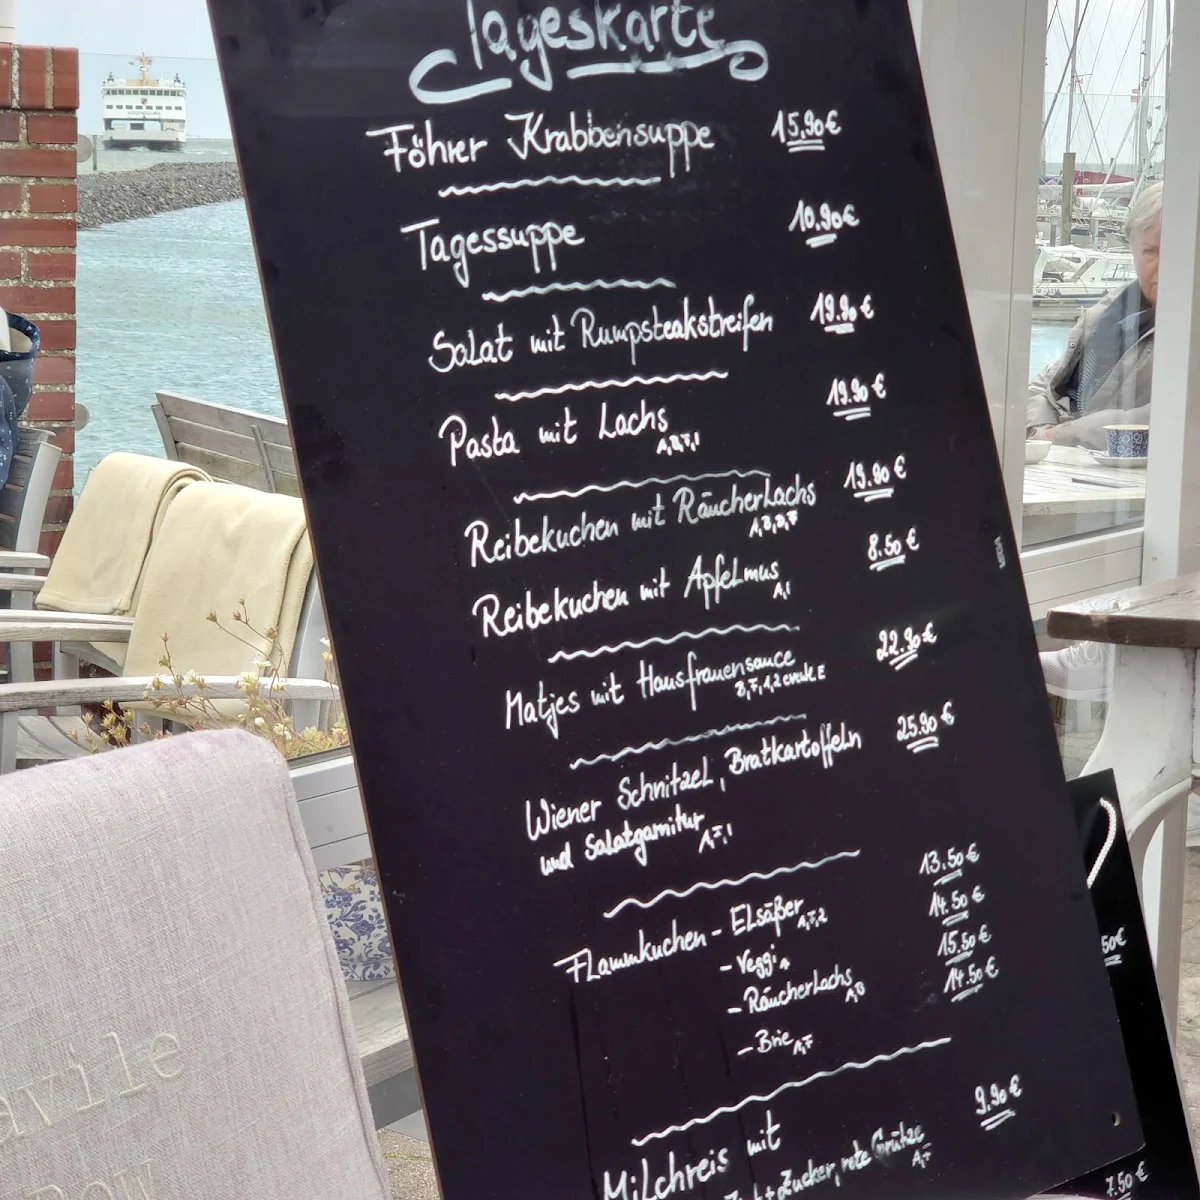 Tageskarte
Föhrer Krabbensuppe 15,90€
Tagessuppe 10.90€
Salat mit Rumpsteakstreifen 19.90€
Pasta mit Lachs 19.90€
Reibekuchen mit Räucherlachs 19.90€
A,B,D,F
Reibekuchen mit Apfelmus 8.50€
A,I
Matjes mit Hausfrauensauce 22.90€
Wiener Schnitzel, Bratkartoffeln 25.90€
und Salatgarnitur
Flammkuchen - Elsäßer 13.50€
- Veggi 14.50€
- Räucherlachs 15.50€
- Brie 14.50€
Milchreis mit 9.90€
Zucker, rote Grütze
50€
7.50€
avile
Row